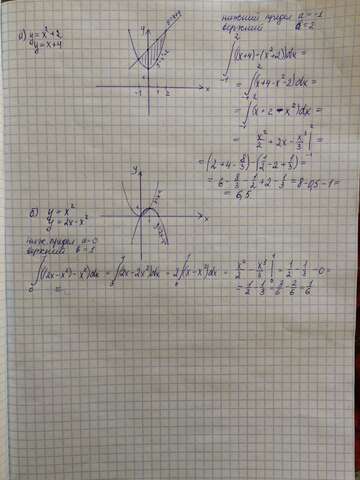 а) y = x² + 2
y = x + 4
нижний предел a = -1
верхний a = 2
y
x
-1 1 2
y=x+4
∫₋₁² ((x+4)-(x²+2))dx =
= ∫₋₁² (x+4-x²-2)dx =
= ∫₋₁² (x+2-x²)dx =
= x²/2 + 2x - x³/3 |₋₁² =
= (2+4-8/3) - (1/2-2+1/3) =
= 6 - 8/3 - 1/2 + 2 - 1/3 = 8-0,5-1 =
= 6,5
б) y = x²
y = 2x-x²
ниж. предел a=0
верхний b=1
y
x
∫₀¹ ((2x-x²)-x²)dx = ∫₀¹ (2x-2x²)dx = 2∫₀¹ (x-x²)dx = x²/2 - x³/3 |₀¹ = 1/2 - 1/3 - 0 =
= 1/2 - 1/3 = 3/6 - 2/6 = 1/6